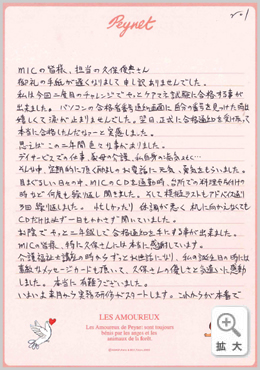 Peynet
No.1
MICの皆様、担当の久保俊典さん
御礼の手紙が遅くなりまして申し訳ありませんでした。
私は今回二度目のチャレンジでケアマネ試験に合格する事が
出来ました。パソコンの合格者番号通知画面に自分の番号を見つけた時は
嬉しくて涙が止まりませんでした。翌日、正式に合格通知を受け取って
本当に合格したんだなァーと実感しました。
思えばこの二年間色々な事がありました。
デイサービスでの仕事、義母の介護、私自身の病気 etc…
そんな中、定期的に頂く励ましのお電話に元気、勇気をもらいました。
目まぐるしい日々の中、MICのCDを通勤時、台所での料理や片付け
時などで何度も繰り返し聞きました。そして模擬テストもアドバイス通り
3回繰り返しました。忙しかったり体調が悪く机に向かえなくても
CDだけは必ず一日もかかさず聞いていました。
お陰でやっと二年越しで合格通知を手にする事が出来ました。
MICの皆様、特に久保さんには本当に感謝しています。
介護福祉士講座の時からずっとお世話になり、私の誕生日の時には
素敵なメッセージカードも頂いて、久保さんの優しさと心遣いに感動
しました。本当に有難うございました。
いよいよ来月から実務研修がスタートします。これからが本番で
LES AMOUREUX
Les Amoureux de Peynet sont toujours
bénis par les anges et les
animaux de la forêt.
拡大